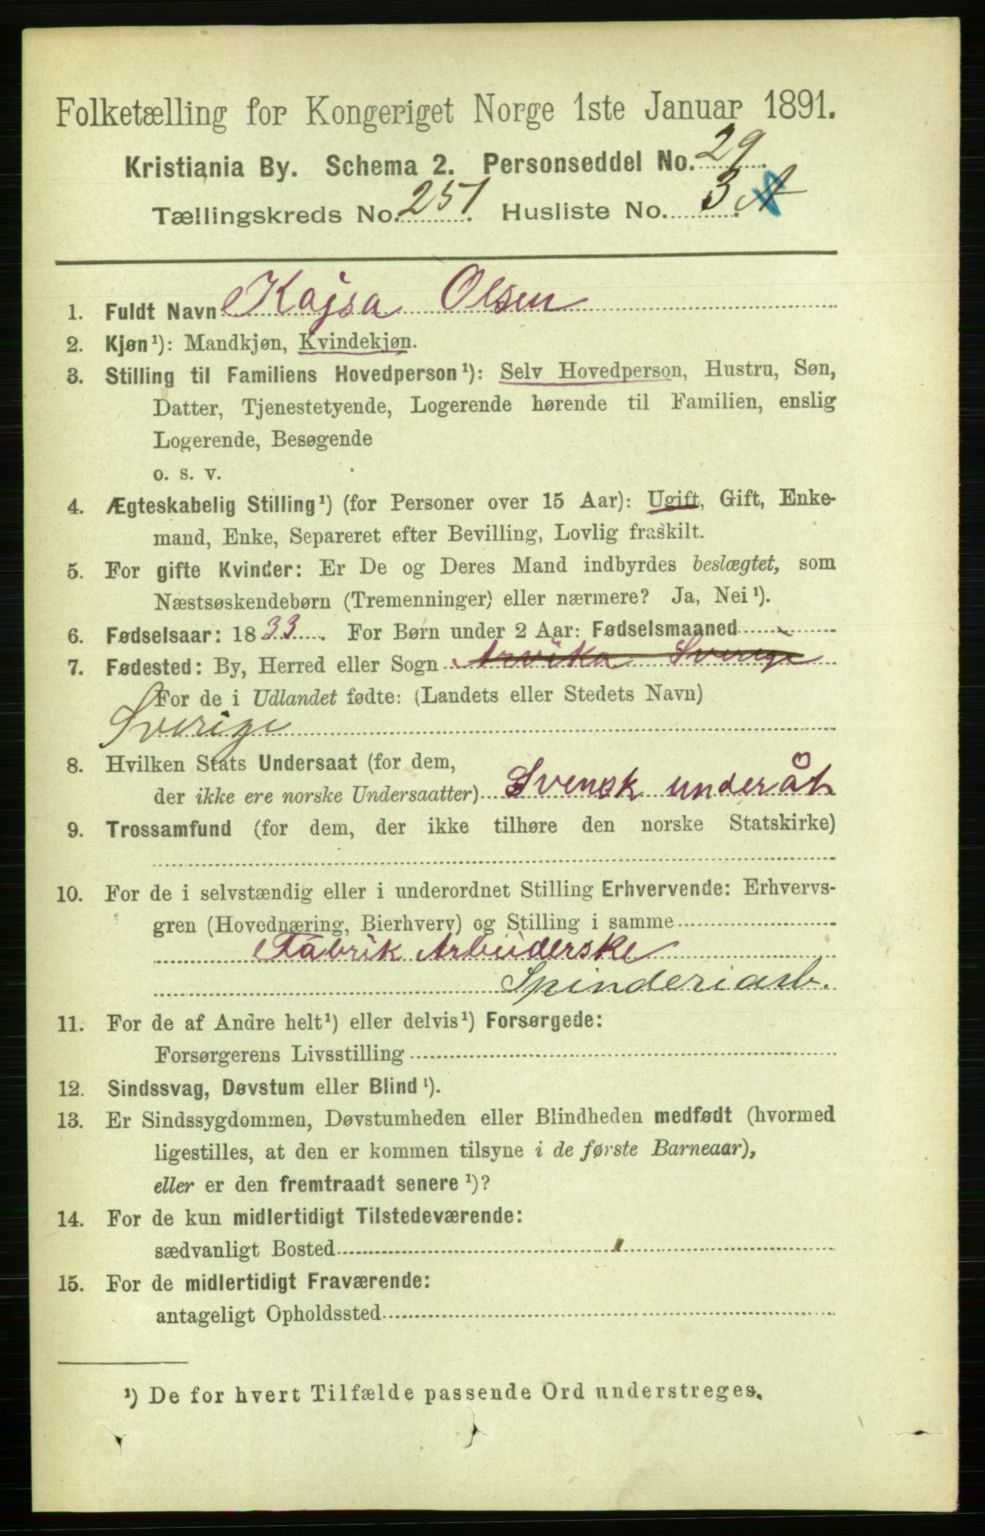 Folketælling for Kongeriget Norge 1ste Januar 1891.
Kristiania By. Schema 2. Personseddel No. 29.
Tællingskreds No. 251. Husliste No. 3 A
1. Fuldt Navn Kajsa Olsen
2. Kjøn¹): Mandkjøn, Kvindekjøn.
3. Stilling til Familiens Hovedperson¹): Selv Hovedperson, Hustru, Søn,
Datter, Tjenestetyende, Logerende hørende til Familien, enslig
Logerende, Besøgende
o. s. v.
4. Ægteskabelig Stilling¹) (for Personer over 15 Aar): Ugift, Gift, Enke-
mand, Enke, Separeret efter Bevilling, Lovlig fraskilt.
5. For gifte Kvinder: Er De og Deres Mand indbyrdes beslægtet, som
Næstsøskendebørn (Tremenninger) eller nærmere? Ja, Nei¹).
6. Fødselsaar: 1833. For Børn under 2 Aar: Fødselsmaaned
7. Fødested: By, Herred eller Sogn Arvika Sverige
For de i Udlandet fødte: (Landets eller Stedets Navn)
Sverige
8. Hvilken Stats Undersaat (for dem,
der ikke ere norske Undersaatter) Svensk underåt
9. Trossamfund (for dem, der ikke tilhøre den norske Statskirke)
10. For de i selvstændig eller i underordnet Stilling Erhvervende: Erhvervs-
gren (Hovednæring, Bierhverv) og Stilling i samme
Fabrik Arbeiderske
Spinderiarb.
11. For de af Andre helt¹) eller delvis¹) Forsørgede:
Forsørgerens Livsstilling
12. Sindssvag, Døvstum eller Blind¹).
13. Er Sindssygdommen, Døvstumheden eller Blindheden medfødt (hvormed
ligestilles, at den er kommen tilsyne i de første Barneaar),
eller er den fremtraadt senere¹)?
14. For de kun midlertidigt Tilstedeværende:
sædvanligt Bosted
15. For de midlertidigt Fraværende:
antageligt Opholdssted
¹) De for hvert Tilfælde passende Ord understreges.